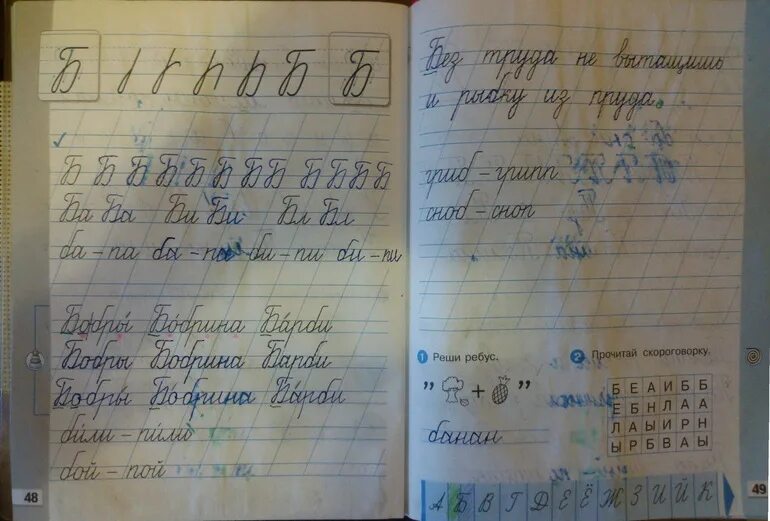 Б Б Б
Б Б Б Б Б Б Б Б Б Б Б
Ба Ба Би Би Бл Бл
ба – па ба – па би – пи би – пи
Бобры́ Бо́брина Ба́рби
Бобры Бобрина Барби
Бобры́ Бо́брина Ба́рби
би́ли – пи́ли
бой – пой
48
Без труда не вытащишь
и рыбку из пруда.
гриб – грипп
сноб – сноп
1 Реши ребус.
" + "
банан
2 Прочитай скороговорку.
Б Е А И Б Б
Е Б Н Л А А
Л А Ы И Р Н
Ы Р Б В А Ы
А Б В Г Д Е Ё Ж З И Й К
49